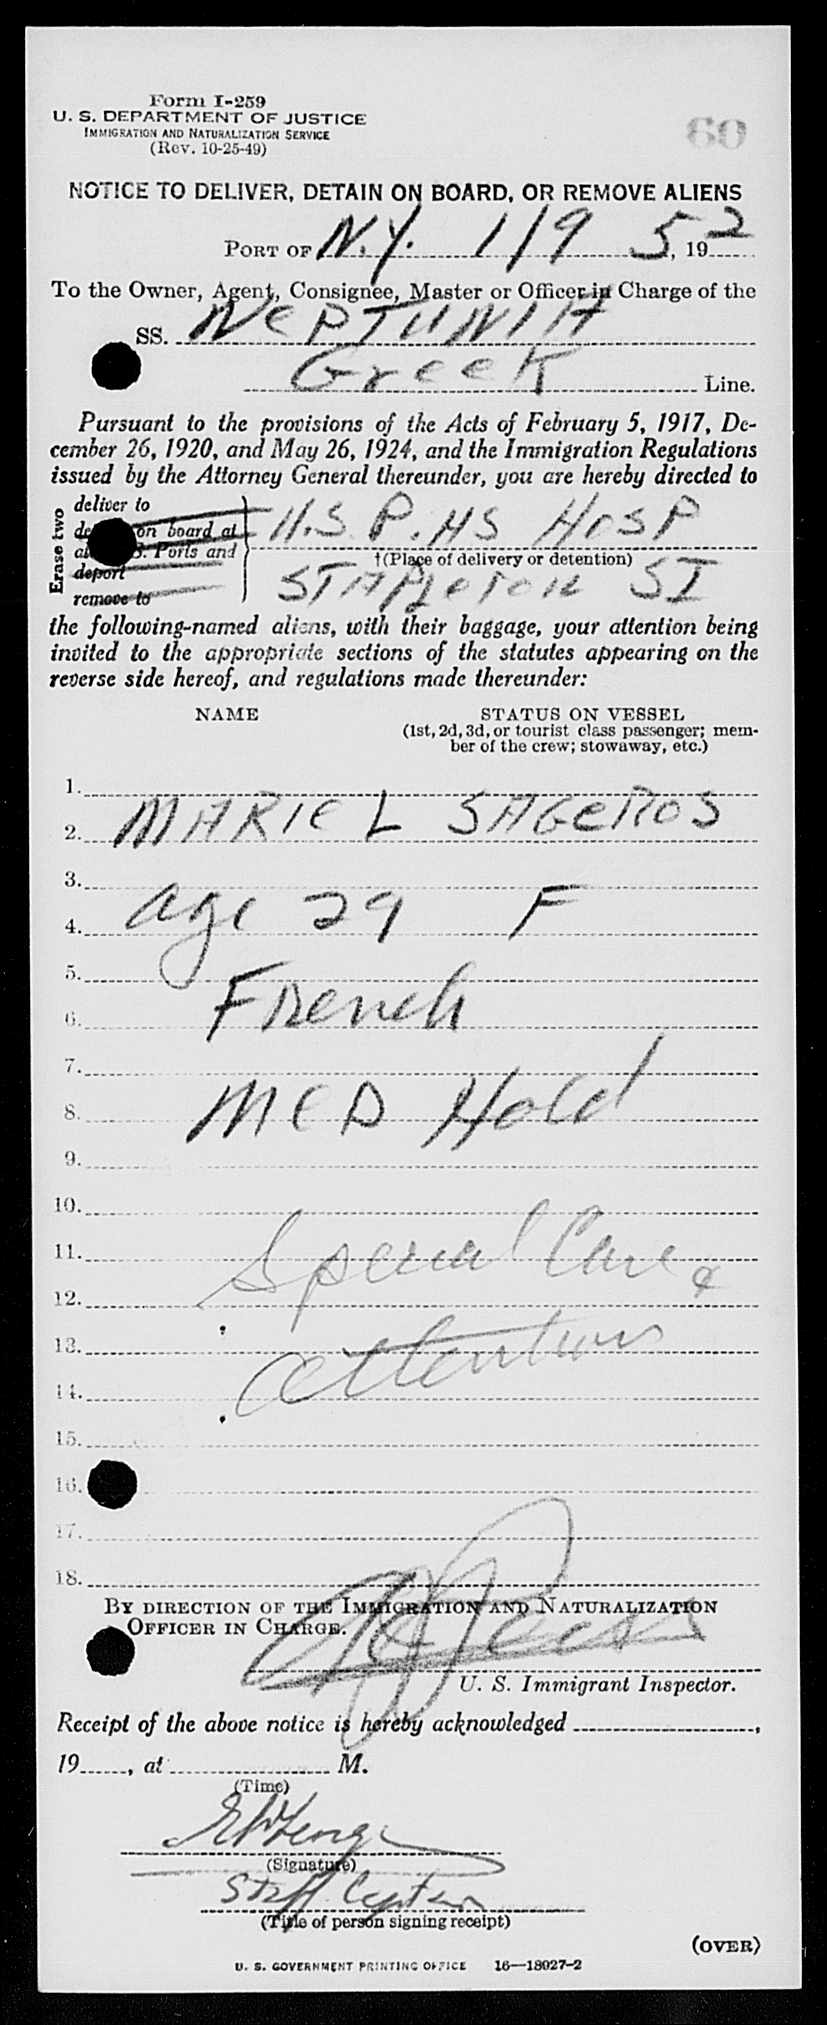 Form I-259
U. S. DEPARTMENT OF JUSTICE
IMMIGRATION AND NATURALIZATION SERVICE
(Rev. 10-25-49)
60
NOTICE TO DELIVER, DETAIN ON BOARD, OR REMOVE ALIENS
PORT OF N.Y. 1/9 5, 19 2
To the Owner, Agent, Consignee, Master or Officer in Charge of the
SS. NEPTUNIA
Greek Line.
Pursuant to the provisions of the Acts of February 5, 1917, De-
cember 26, 1920, and May 26, 1924, and the Immigration Regulations
issued by the Attorney General thereunder, you are hereby directed to
Erase two
deliver to
on board at
Ports and
deport
remove to
U.S. P.HS HOSP
†(Place of delivery or detention)
STAPLETON SI
the following-named aliens, with their baggage, your attention being
invited to the appropriate sections of the statutes appearing on the
reverse side hereof, and regulations made thereunder:
NAME STATUS ON VESSEL
(1st, 2d, 3d, or tourist class passenger; mem-
ber of the crew; stowaway, etc.)
1.
2. MARIE L SAGEROS
3.
4. age 29 F
5.
6. French
7.
8. MED Hold
9.
10.
11. Special Care &
12.
13. attention
14.
15.
16.
17.
18.
BY DIRECTION OF THE IMMIGRATION AND NATURALIZATION
OFFICER IN CHARGE.
U. S. Immigrant Inspector.
Receipt of the above notice is hereby acknowledged ,
19 , at M.
(Time)
(Signature)
Staff Captain
(Title of person signing receipt)
(OVER)
U. S. GOVERNMENT PRINTING OFFICE 16—18927-2